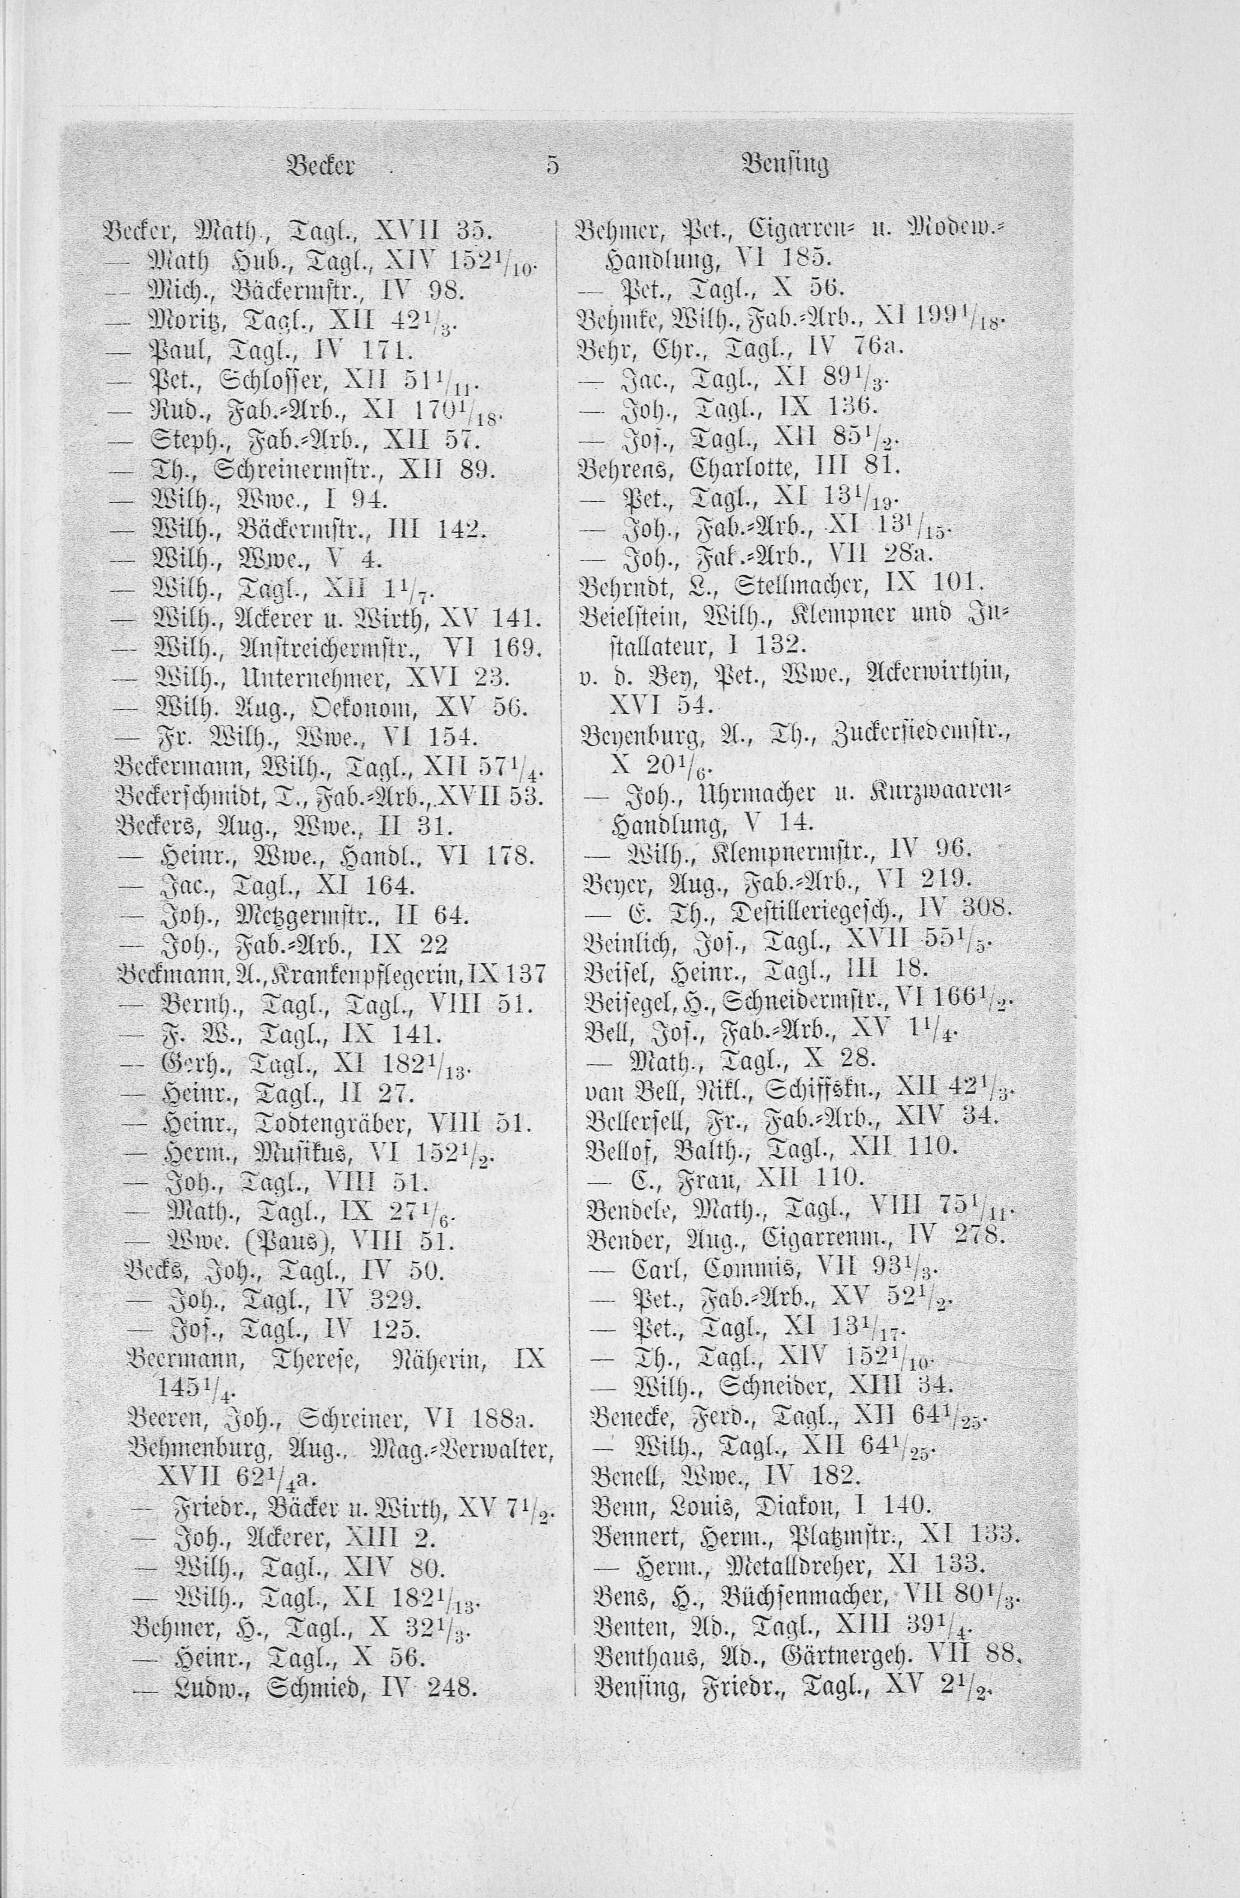 Becker 5 Bensing
Becker, Math., Tagl., XVII 35.
— Math Hub., Tagl., XIV 152 1/10.
— Mich., Bäckermstr., IV 98.
— Moritz, Tagl., XII 42 1/3.
— Paul, Tagl., IV 171.
— Pet., Schlosser, XII 51 1/11.
— Rud., Fab.-Arb., XI 170 1/18.
— Steph., Fab.-Arb., XII 57.
— Th., Schreinermstr., XII 89.
— Wilh., Wwe., I 94.
— Wilh., Bäckermstr., III 142.
— Wilh., Wwe., V 4.
— Wilh., Tagl., XII 1 1/7.
— Wilh., Ackerer u. Wirth, XV 141.
— Wilh., Anstreichermstr., VI 169.
— Wilh., Unternehmer, XVI 23.
— Wilh. Aug., Oekonom, XV 56.
— Fr. Wilh., Wwe., VI 154.
Beckermann, Wilh., Tagl., XII 57 1/4.
Beckerschmidt, T., Fab.-Arb., XVII 53.
Beckers, Aug., Wwe., II 31.
— Heinr., Wwe., Handl., VI 178.
— Jac., Tagl., XI 164.
— Joh., Metzgermstr., II 64.
— Joh., Fab.-Arb., IX 22
Beckmann, A., Krankenpflegerin, IX 137
— Bernh., Tagl., Tagl., VIII 51.
— F. W., Tagl., IX 141.
— Gerh., Tagl., XI 182 1/13.
— Heinr., Tagl., II 27.
— Heinr., Todtengräber, VIII 51.
— Herm., Musikus, VI 152 1/2.
— Joh., Tagl., VIII 51.
— Math., Tagl., IX 27 1/6.
— Wwe. (Paus), VIII 51.
Becks, Joh., Tagl., IV 50.
— Joh., Tagl., IV 329.
— Jos., Tagl., IV 125.
Beermann, Therese, Näherin, IX
145 1/4.
Beeren, Joh., Schreiner, VI 188a.
Behmenburg, Aug., Mag.-Verwalter,
XVII 62 1/4a.
— Friedr., Bäcker u. Wirth, XV 7 1/2.
— Joh., Ackerer, XIII 2.
— Wilh., Tagl., XIV 80.
— Wilh., Tagl., XI 182 1/13.
Behmer, H., Tagl., X 32 1/3.
— Heinr., Tagl., X 56.
— Ludw., Schmied, IV 248.
Behmer, Pet., Cigarren- u. Modew.-
Handlung, VI 185.
— Pet., Tagl., X 56.
Behmke, Wilh., Fab.-Arb., XI 199 1/18.
Behr, Chr., Tagl., IV 76a.
— Jac., Tagl., XI 89 1/3.
— Joh., Tagl., IX 136.
— Jos., Tagl., XII 85 1/2.
Behrens, Charlotte, III 81.
— Pet., Tagl., XI 13 1/19.
— Joh., Fab.-Arb., XI 13 1/15.
— Joh., Fab.-Arb., VII 28a.
Behrndt, L., Stellmacher, IX 101.
Beielstein, Wilh., Klempner und In-
stallateur, I 132.
v. d. Bey, Pet., Wwe., Ackerwirthin,
XVI 54.
Beyenburg, A., Th., Zuckersiedemstr.,
X 20 1/6.
— Joh., Uhrmacher u. Kurzwaaren-
Handlung, V 14.
— Wilh., Klempnermstr., IV 96.
Beyer, Aug., Fab.-Arb., VI 219.
— E. Th., Destilleriegesch., IV 308.
Beinlich, Jos., Tagl., XVII 55 1/5.
Beisel, Heinr., Tagl., III 18.
Beisegel, H., Schneidermstr., VI 166 1/2.
Bell, Jos., Fab.-Arb., XV 1 1/4.
— Math., Tagl., X 28.
van Bell, Nikl., Schiffskn., XII 42 1/3.
Bellersell, Fr., Fab.-Arb., XIV 34.
Bellof, Balth., Tagl., XII 110.
— C., Frau, XII 110.
Bendele, Math., Tagl., VIII 75 1/11.
Bender, Aug., Cigarrenm., IV 278.
— Carl, Commis, VII 93 1/3.
— Pet., Fab.-Arb., XV 52 1/2.
— Pet., Tagl., XI 13 1/17.
— Th., Tagl., XIV 152 1/10.
— Wilh., Schneider, XIII 34.
Benecke, Ferd., Tagl., XII 64 1/25.
— Wilh., Tagl., XII 64 1/25.
Benell, Wwe., IV 182.
Benn, Louis, Diakon, I 140.
Bennert, Herm., Platzmstr., XI 133.
— Herm., Metalldreher, XI 133.
Bens, H., Büchsenmacher, VII 80 1/3.
Benten, Ad., Tagl., XIII 39 1/4.
Benthaus, Ad., Gärtnergeh. VII 88.
Bensing, Friedr., Tagl., XV 2 1/2.